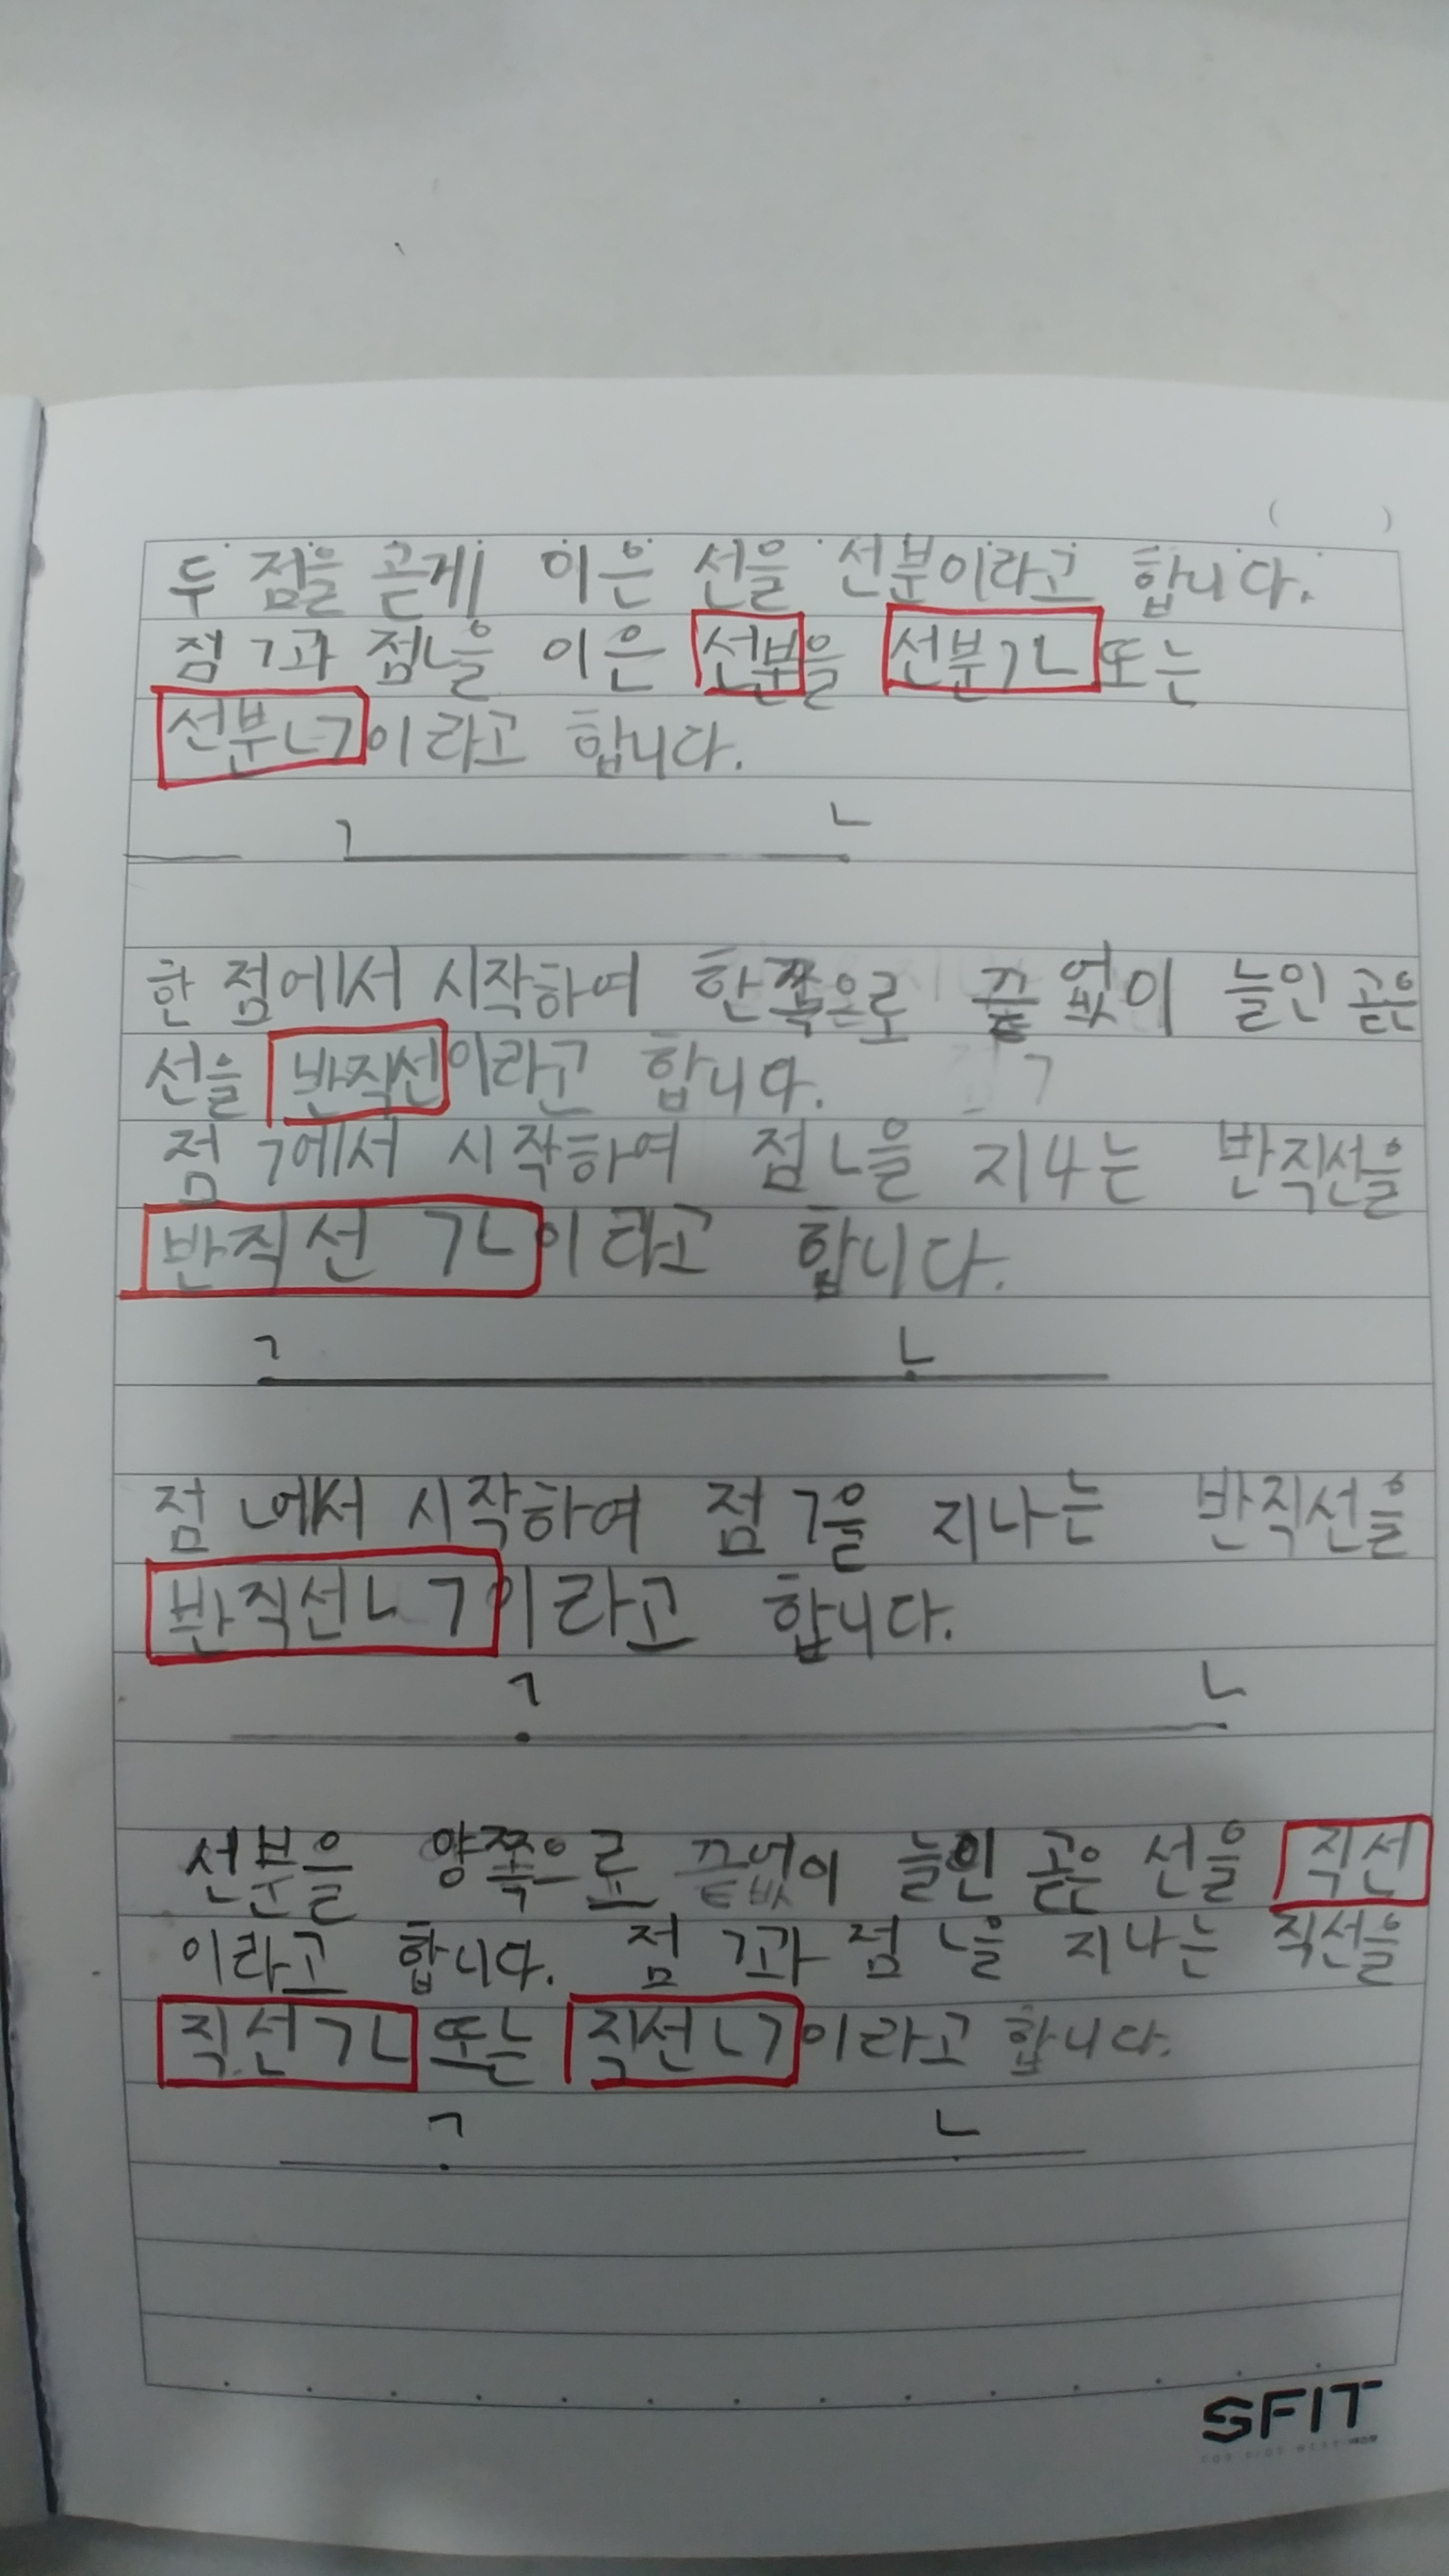 ( )
두 점을 곧게 이은 선을 선분이라고 합니다.
점 ㄱ과 점ㄴ을 이은 선분을 선분ㄱㄴ 또는
선분ㄴㄱ이라고 합니다.
ㄱ ㄴ
한 점에서 시작하여 한쪽으로 끝없이 늘인 곧은
선을 반직선이라고 합니다.
점 ㄱ에서 시작하여 점ㄴ을 지나는 반직선을
반직선 ㄱㄴ이라고 합니다.
ㄱ ㄴ
점 ㄴ에서 시작하여 점 ㄱ을 지나는 반직선을
반직선ㄴㄱ이라고 합니다.
ㄱ ㄴ
선분을 양쪽으로 끝없이 늘인 곧은 선을 직선
이라고 합니다. 점 ㄱ과 점 ㄴ을 지나는 직선을
직선ㄱㄴ 또는 직선ㄴㄱ이라고 합니다.
ㄱ ㄴ
SFIT